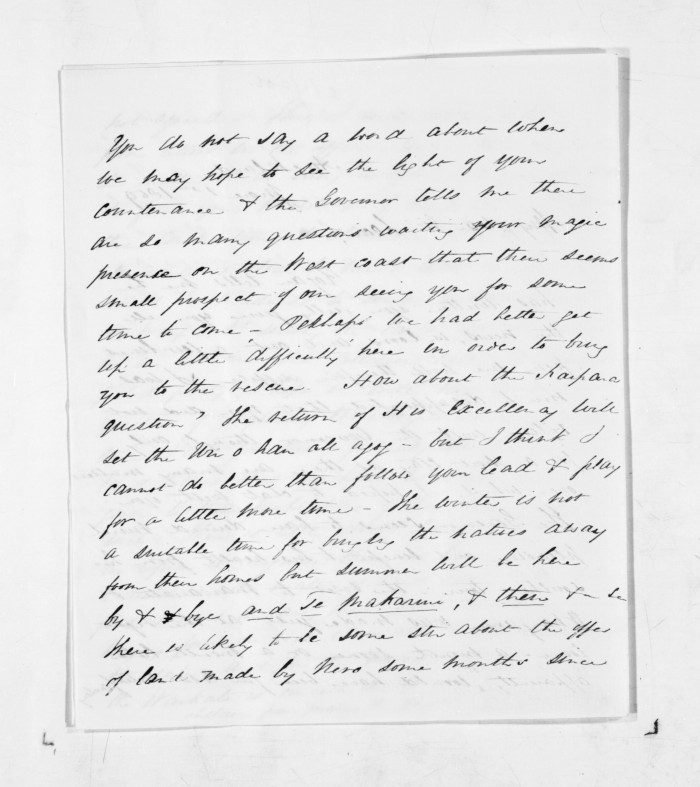 You do not say a word about when
we may hope to see the light of your
countenance & the Governor tells me there
are so many questions waiting your magic
presence on the West coast that there seems
small prospect of our seeing you for some
time to come – Perhaps we had better get
up a little "difficulty" here in order to bring
you to the rescue. How about the Kaipara
question? The return of His Excellency will
set the Uri o hau all agog – but I think I
cannot do better than follow your lead & play
for a little more time – The winter is not
a suitable time for bringing the natives away
from their homes but summer will be here
by & bye and Te Makarini, & then &c &c
There is likely to be some stir about the offer
of land made by Nera some months since